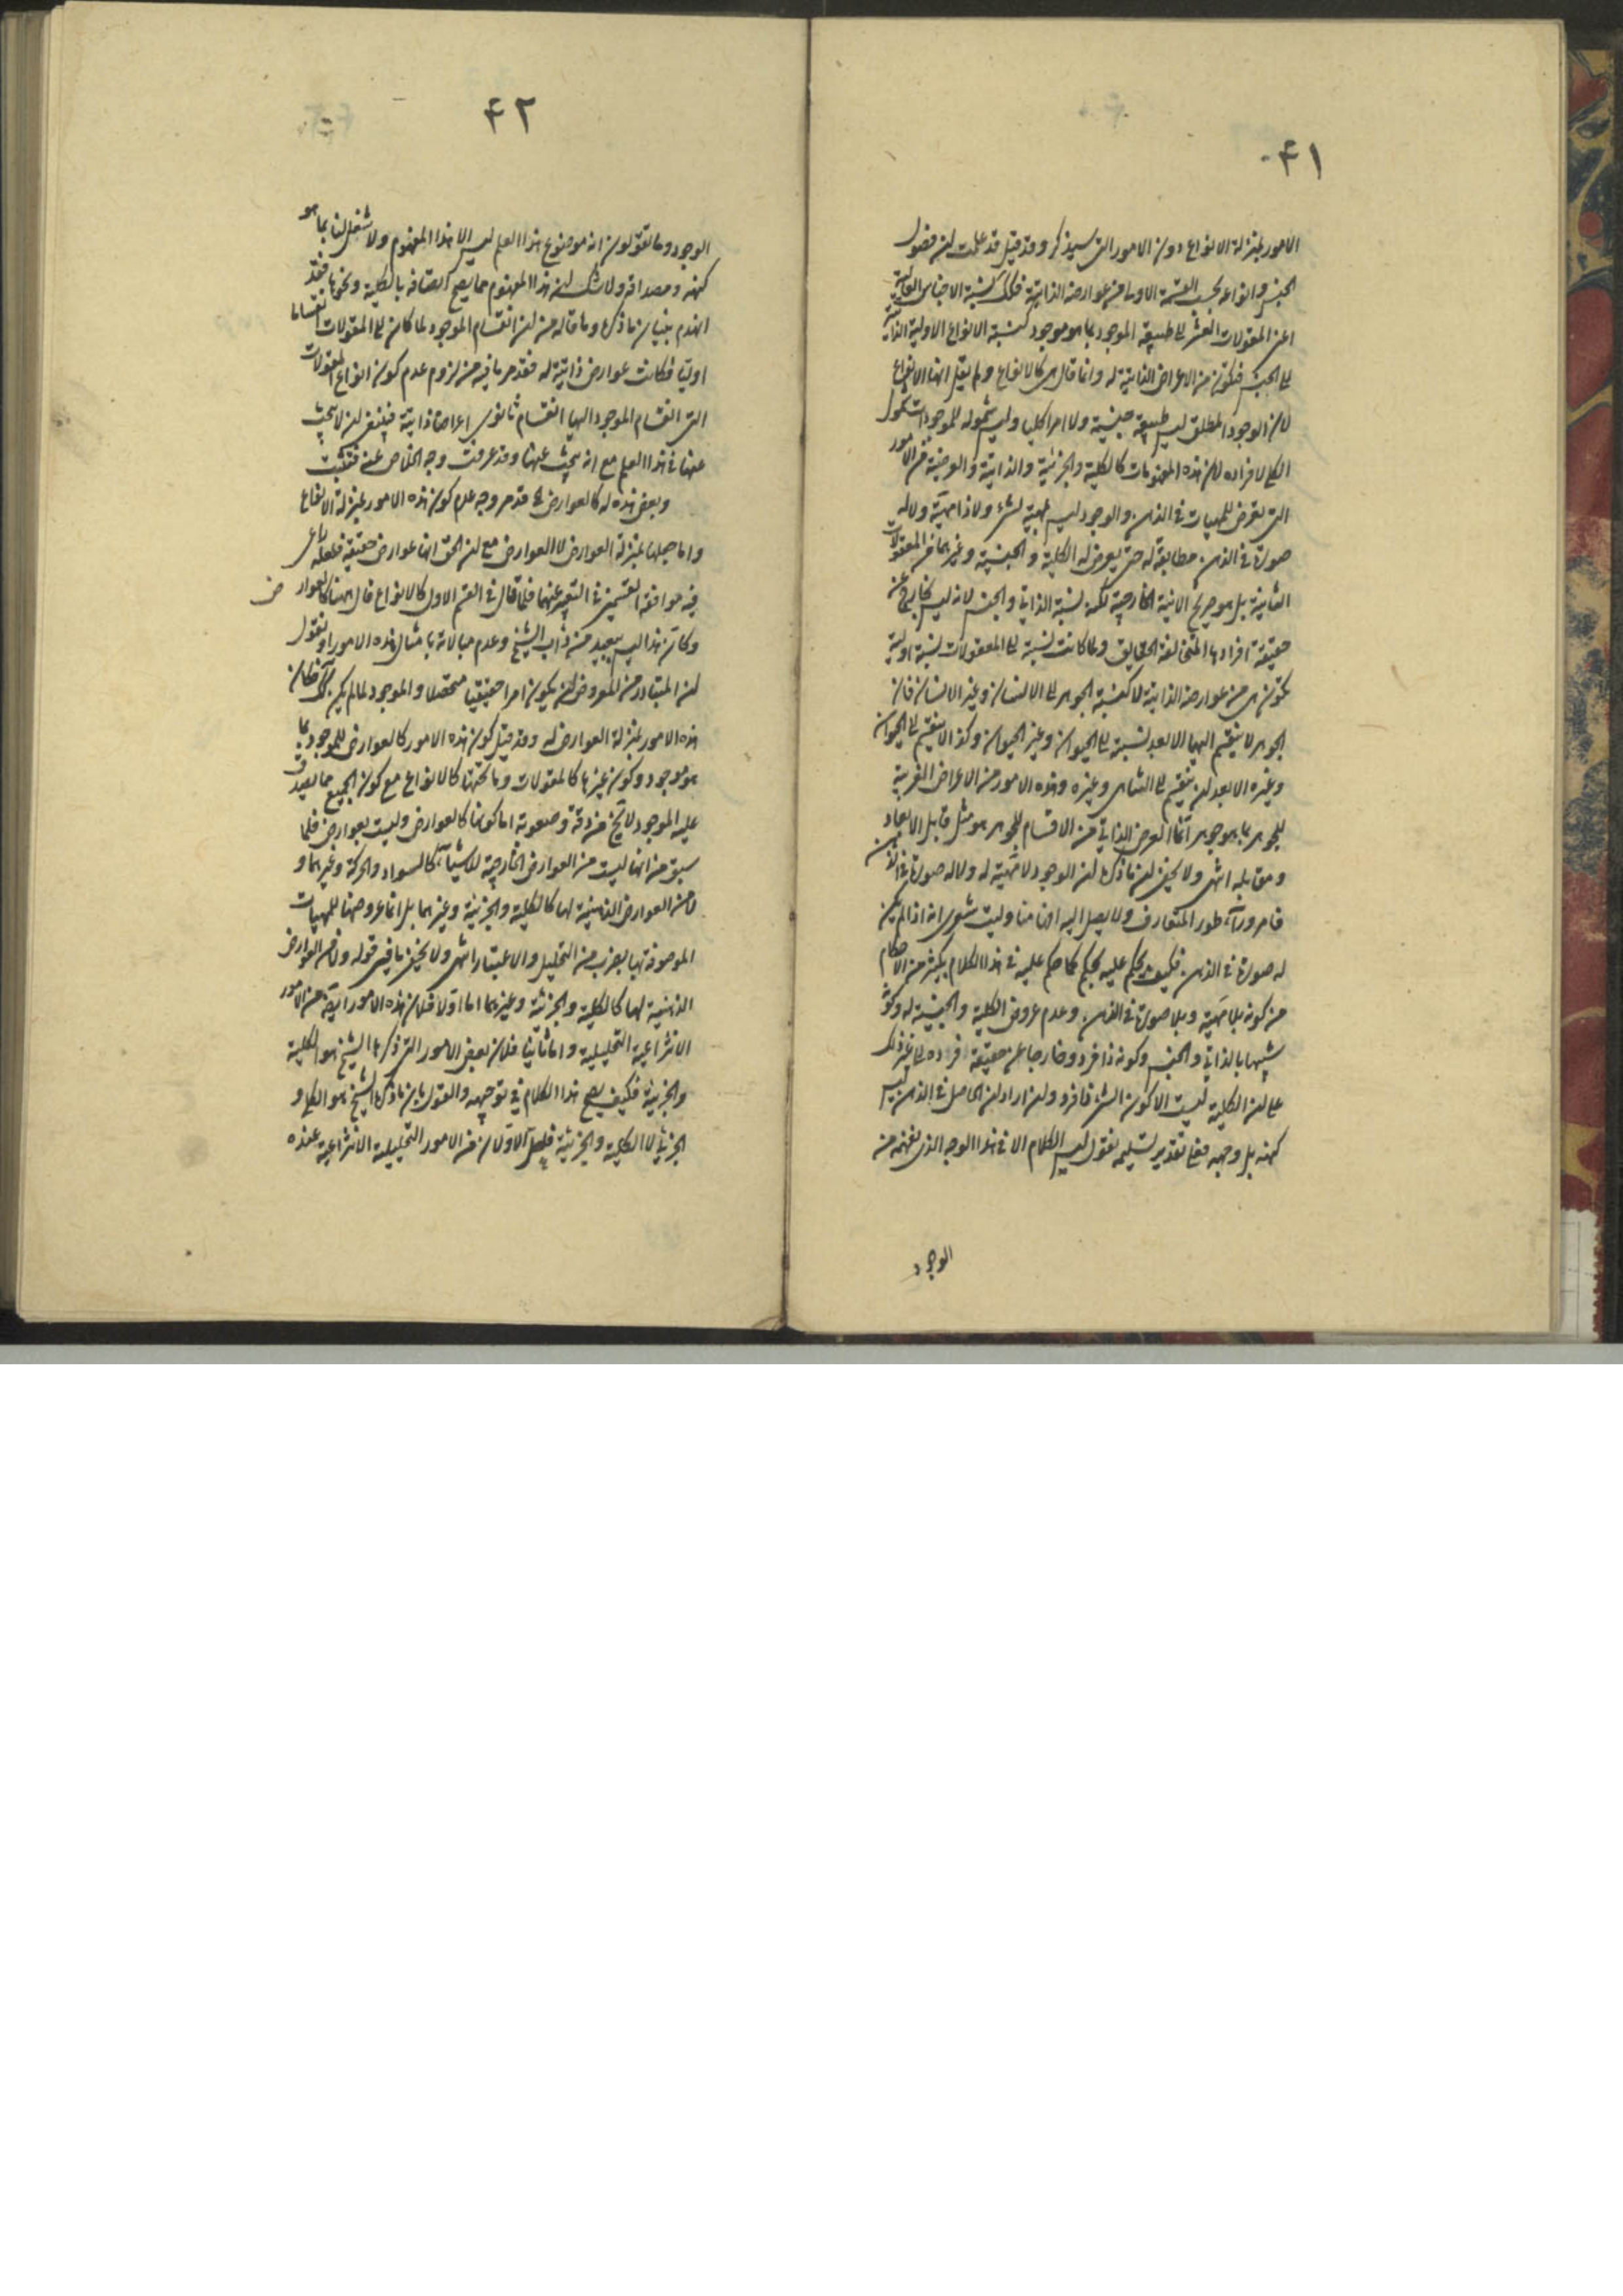 ۴۱
الامور بمنزلة الانواع دون الامور التی سیذکر وقد قیل قد علمت ان فصول
الجنس وانواعه بحسب القسمة الاولی من عوارضه الذاتیة فکذلک نسبة الاجناس العالیة
اعنی المقولات العشر الی طبیعة الموجود بما هو موجود کنسبة الانواع الاولیة الذاتیة
الی الجنس فتکون من الاعراض الذاتیة له وانما قال هی کالانواع ولم یقل انها الانواع
لان الوجود المطلق لیس طبیعة جنسیة ولا امرا کلیا ولیس شموله للموجودات کشمول
الکلی لافراده لان هذه المفهومات کالکلیة والجزئیة والذاتیة والعرضیة من الامور
التی تعرض للمهیات فی الذهن والوجود لیس مهیة لشیء ولا ذا مهیة ولا له
صورة فی الذهن مطابقة له حتی یعرض له الکلیة والجنسیة وغیرهما من المعقولات
الثانیة بل هو صریح الانیة الخارجیة لکنه یشبه الذاتی والجنس لانه لیس بخارج عن
حقیقة افرادها المتخالفة الحقایق ولما کانت نسبته الی المقولات نسبة اولیة
تکون هی من عوارضه الذاتیة لا کنسبة الجوهر الی الانسان وغیر الانسان فان
الجوهر لا ینقسم الیهما الا بعد نسبته الی الحیوان وغیر الحیوان وکذا لا ینقسم الی الحیوان
وغیره الا بعد ان ینقسم الی النامی وغیره وهذه الامور من الاعراض الغریبة
للجوهر بما هو جوهر انما العرض الذاتی من الاقسام للجوهر هو مثل قابل الابعاد
ومقابله انتهی ولا یخفی ان ما ذکره ان الوجود لا مهیة له ولا له صورة فی الذهن
فامر وراء طور المتعارف ولا یصل الیه افهامنا ولیت شعری انه اذا لم یکن
له صورة فی الذهن فکیف یحکم علیه بحکم کما حکم علیه فی هذا الکلام بکثیر من الاحکام
من کونه بلا مهیة وبلا صورة فی الذهن وعدم عروض الکلیة والجنسیة له وکونه
شبیها بالذاتی والجنس وکونه ذا فرد وخارجا عن حقیقة افراده الی غیر ذلک
علی ان الکلیة لیست الا کون الشیء ذا فرد وان اراد ان الحاصل فی الذهن لیس
کنهه بل وجهه فعلی تقدیر تسلیمه نقول لیس الکلام الا فی هذا الوجه الذی نفهمه من
الوجود
۴۲
الوجود وما تقولون انه موضوع هذا العلم لیس الا هذا المفهوم ولا شغل لنا بما هو
کنهه ومصداقه ولا شک ان هذا المفهوم مما یصح اتصافه بالکلیة ونحوها فقد
انهدم بنیان ما ذکره وما قاله من ان انقسام الموجود لما کان الی المقولات انقساما
اولیا فکانت عوارض ذاتیة له فقد مر ما فیه من لزوم عدم کون انواع المقولات
التی انقسام الموجود الیها انقسام ثانوی اعراضا ذاتیة فینبغی ان لا یبحث
عنها فی هذا العلم مع انه یبحث عنها وقد عرفت وجه الخلاص عنه فتثبت
وبعض هذه له کالعوارض قد مر وجه عدم کون هذه الامور بمنزلة الانواع
واما جعلها بمنزلة العوارض لا العوارض مع ان الحق انها عوارض حقیقة فلعله راعی
فیه موافقة القسمین فی التعبیر عنهما فلما قال فی القسم الاول کالانواع قال هیهنا کالعوارض
وکان هذا لیس ببعید من داب الشیخ وعدم مبالاته بامثال هذه الامور او نقول
ان المتبادر من المعروض ان یکون امرا حقیقیا متحصلا والموجود لما لم یکن کذلک فکان
هذه الامور بمنزلة العوارض له وقد قیل کون هذه الامور کالعوارض للموجود بما
هو موجود وکون غیرها کالمقولات وما تحتها کالانواع مع کون الجمیع مما یصدق
علیه الموجود لا یخ من دقة وصعوبة اما کونها کالعوارض ولیست بعوارض فلما
سبق من انها لیست من العوارض الخارجیة للاشیاء کالسواد والحرکة وغیرهما و
لا من العوارض الذهنیة لها کالکلیة والجزئیة وغیرهما بل انما عروضها للمهیات
الموصوفة بها بضرب من التحلیل والاعتبار انتهی ولا یخفی ما فی قوله ولا من العوارض
الذهنیة لها کالکلیة والجزئیة وغیرهما اما اولا فلان هذه الامور ایضا من الامور
الانتزاعیة التحلیلیة واما ثانیا فلان بعض الامور التی ذکرها الشیخ هو الکلیة
والجزئیة فکیف یصح هذا الکلام فی توجیهه والقول بان ما ذکره الشیخ هو الکلی و
الجزئی لا الکلیة والجزئیة فلعل الاولان من الامور التحلیلیة الانتزاعیة عنده